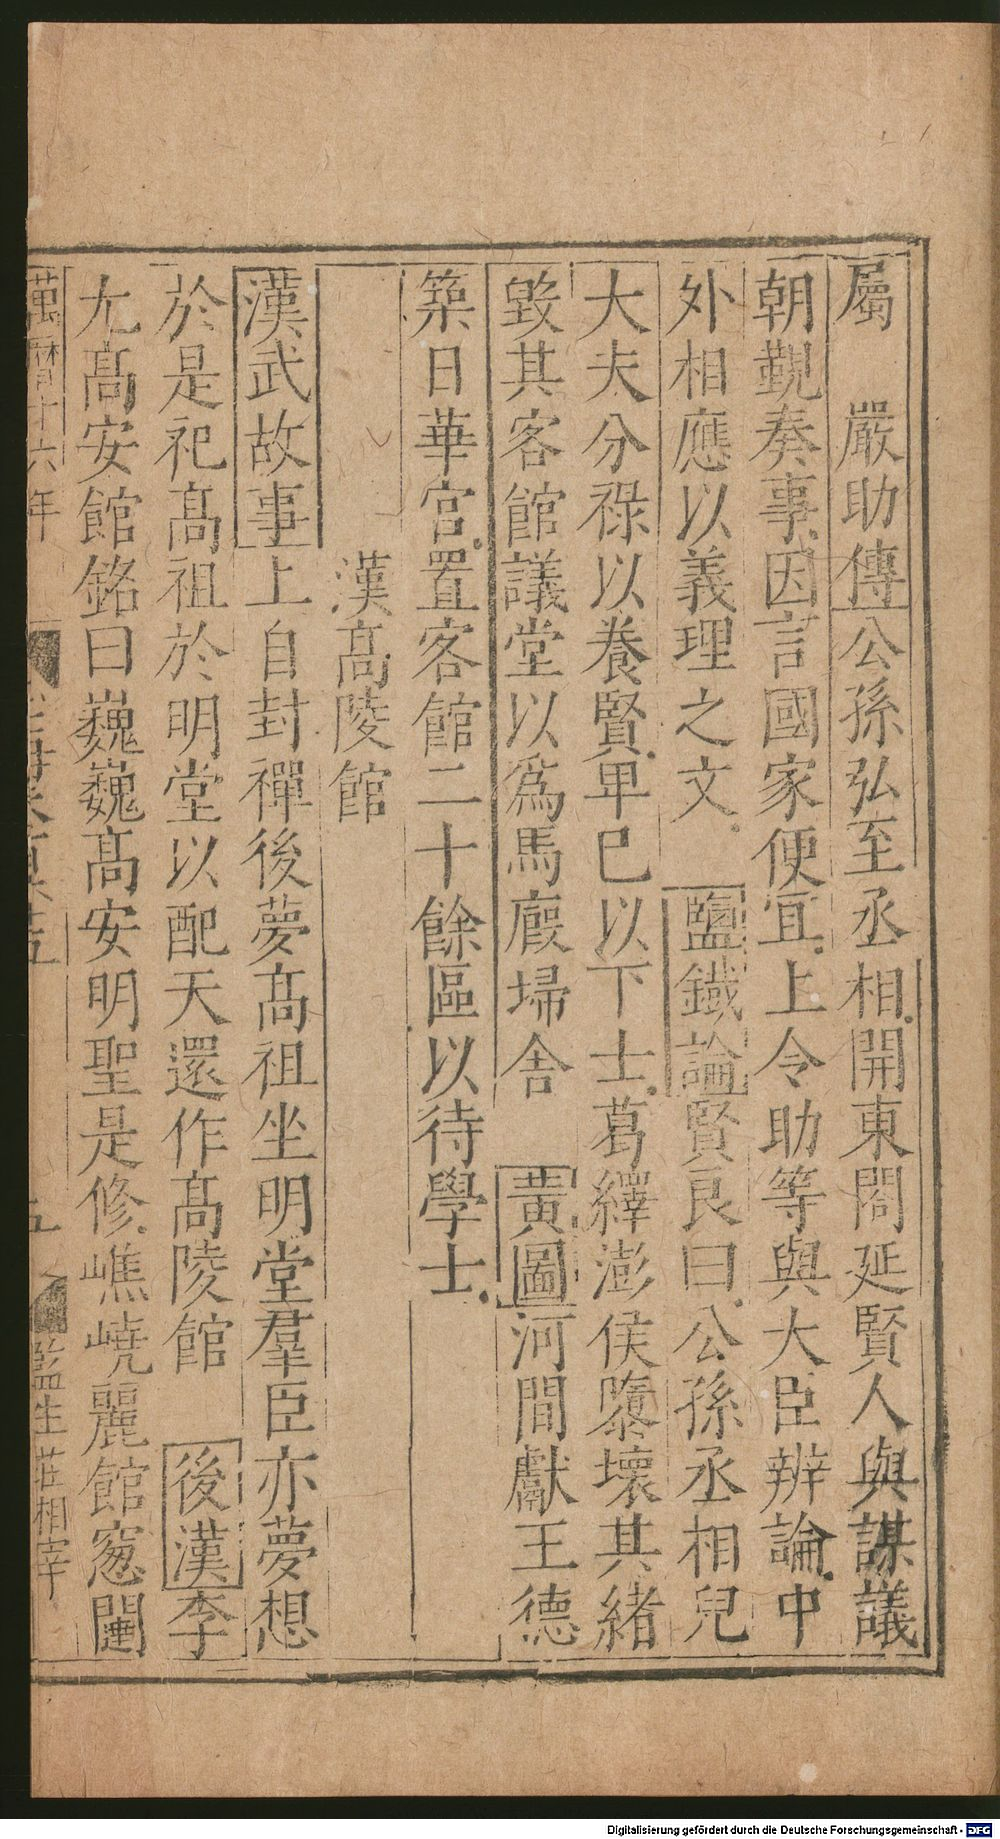 屬　嚴助傳公孫弘至丞相開東閤延賢人與謀議
朝覲奏事因言國家便宜上令助等與大臣辨論中
外相應以義理之文　鹽鐵論賢良曰公孫丞相兒
大夫分祿以養賢卑已以下士葛繹澎侯隳壞其緒
毀其客館議堂以爲馬廄埽舍　黃圖河間獻王德
築日華宮置客館二十餘區以待學士
漢高陵館
漢武故事上自封禪後夢髙祖坐明堂羣臣亦夢想
於是祀髙祖於明堂以配天還作髙陵館　後漢李
尤髙安館銘曰巍巍髙安明聖是修嶕嶢麗館窻闥
萬曆十六年
五
監生莊相宰
Digitalisierung gefördert durch die Deutsche Forschungsgemeinschaft - DFG